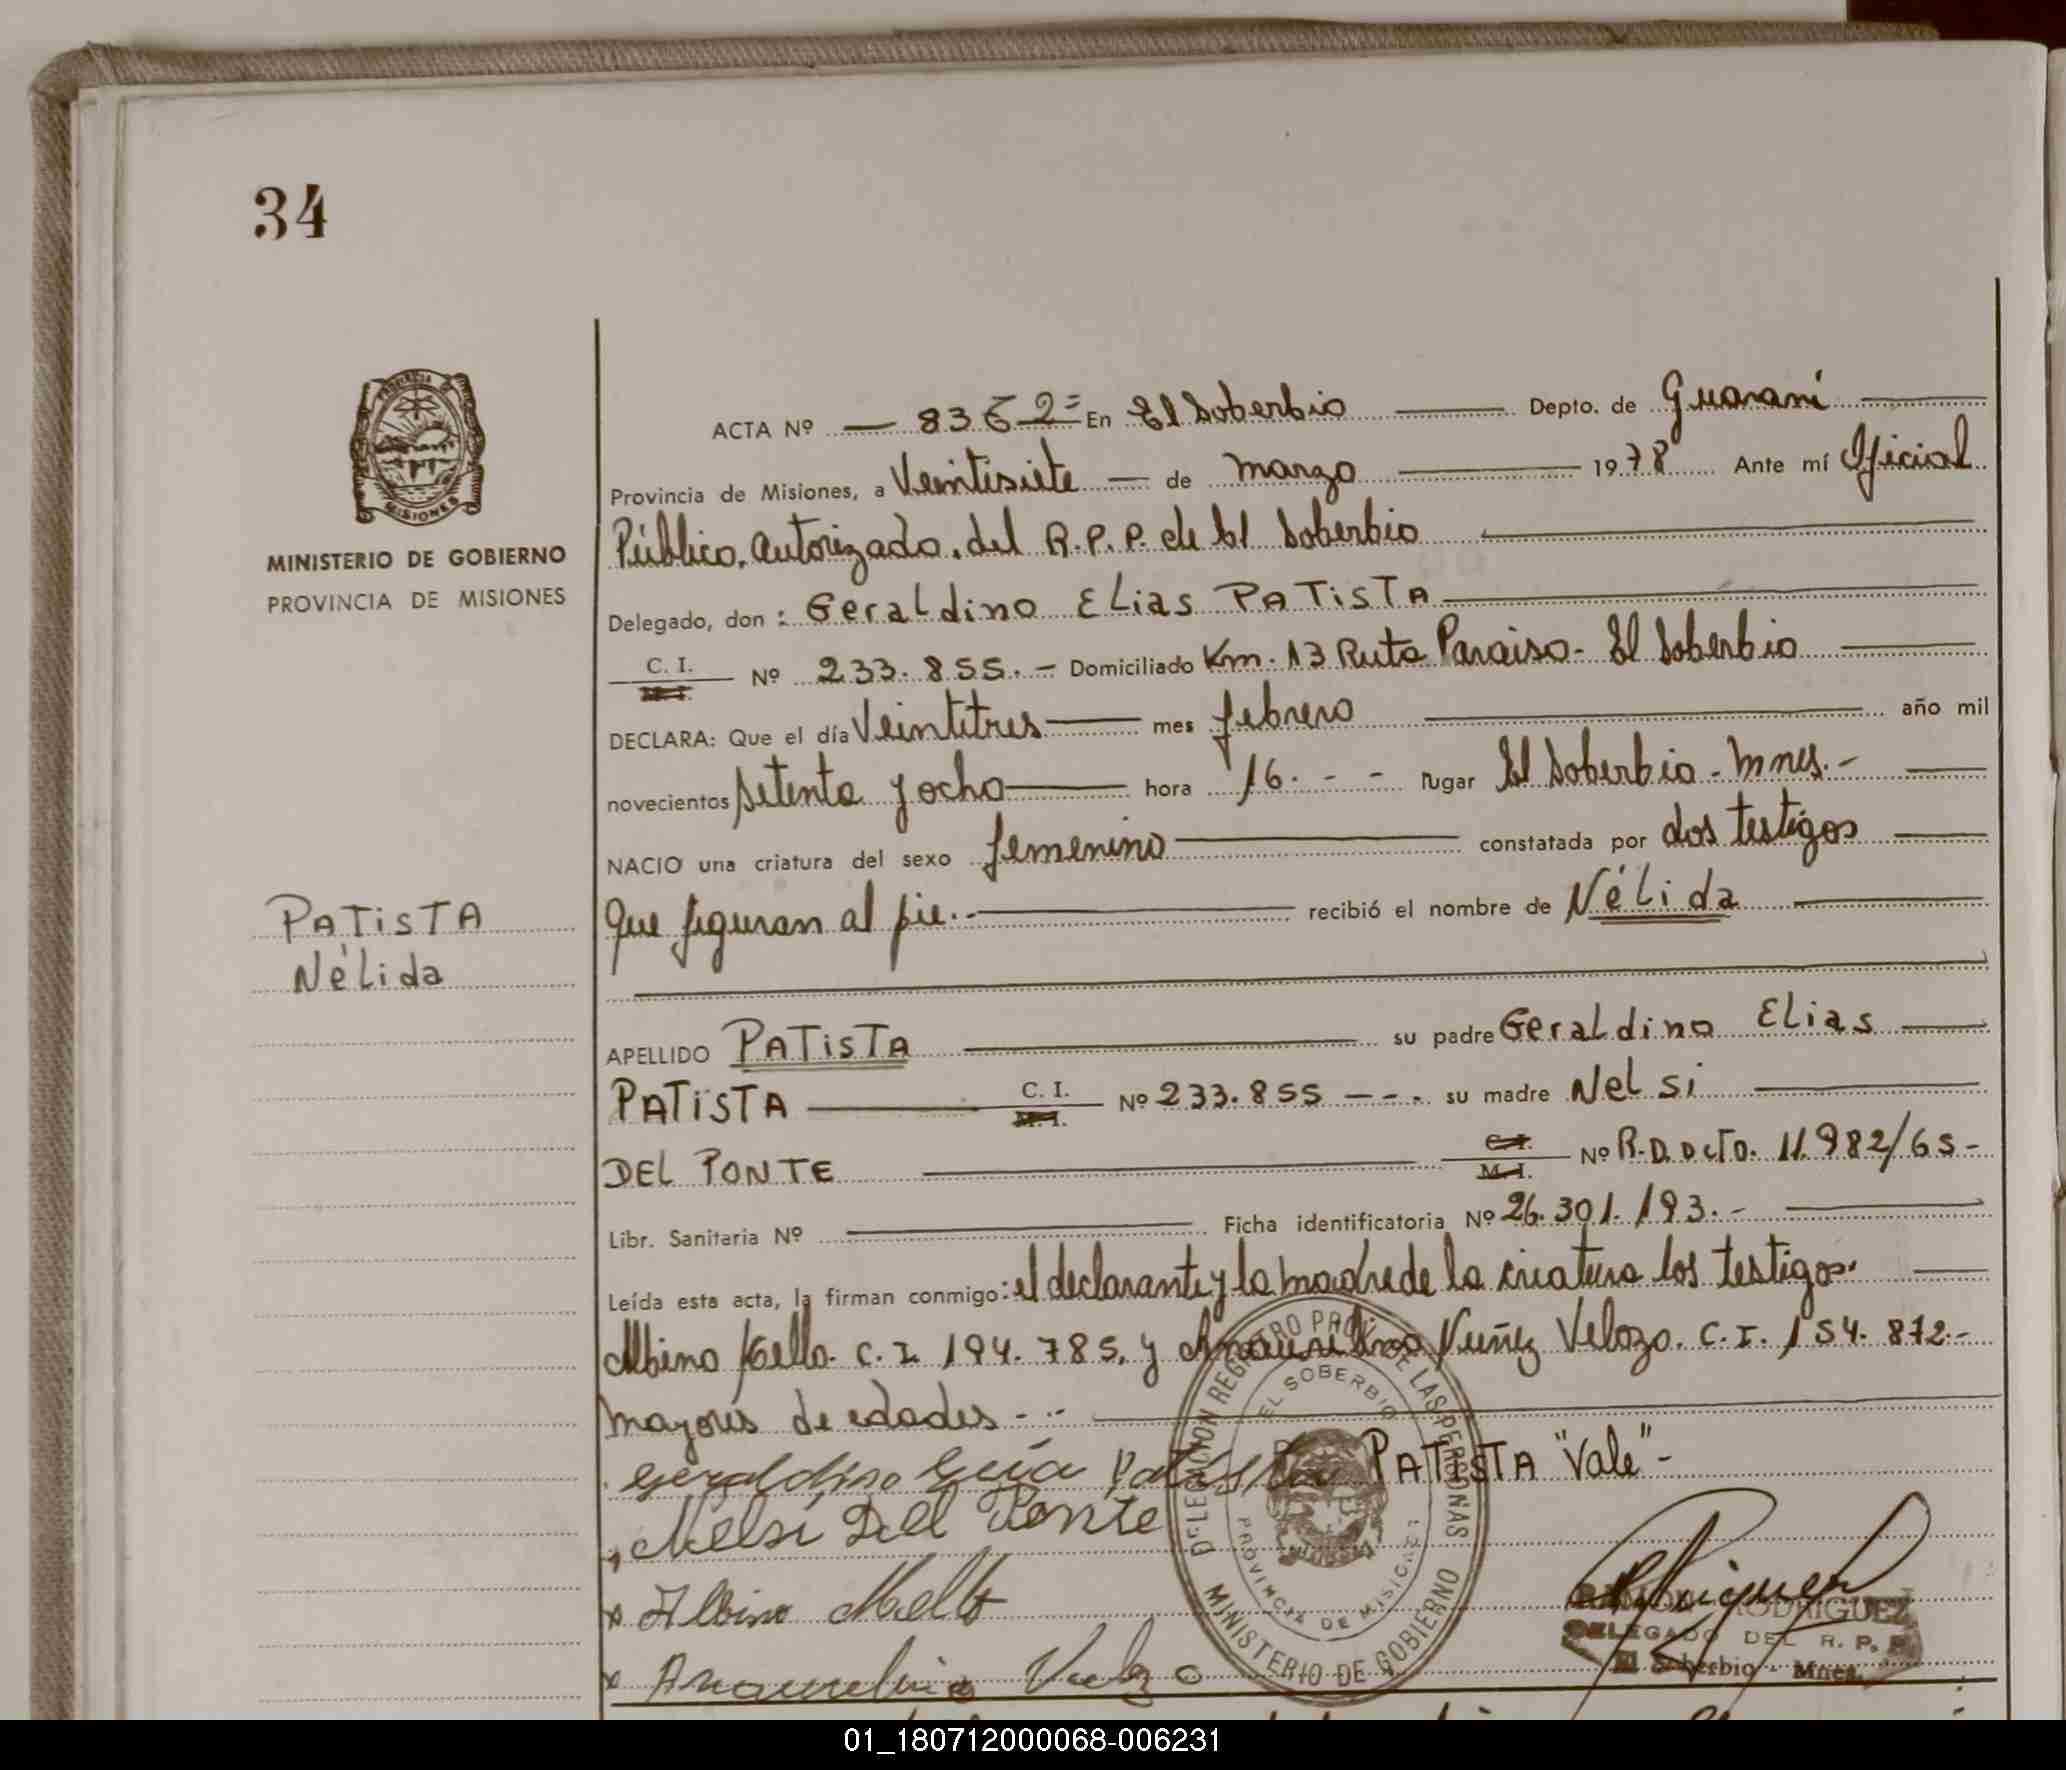 34
PROVINCIA
MISIONES
MINISTERIO DE GOBIERNO
PROVINCIA DE MISIONES
ACTA Nº — 8362= En El Soberbio — Depto. de Guaraní —
Provincia de Misiones, a Veintisiete — de marzo — 1978 Ante mí Oficial
Público, Autorizado, del R.P.P. de El Soberbio —
Delegado, don : Geraldino Elias PATISTA —
C. I. M. I. Nº 233.855.- Domiciliado Km. 13 Ruta Paraiso - El Soberbio —
DECLARA: Que el día Veintitres — mes febrero — año mil
novecientos setenta y ocho — hora 16. - - lugar El Soberbio - Mnes.- —
NACIO una criatura del sexo femenino — constatada por dos testigos —
Que figuran al pie.- — recibió el nombre de Nélida —
PATISTA
Nélida
APELLIDO PATISTA — su padre Geraldino Elias —
PATISTA — C. I. M. I. Nº 233.855 - - - su madre Nelsi —
DEL PONTE — C. I. M. I. Nº R.D. DCTO. 11.982/65-
Libr. Sanitaria Nº — Ficha identificatoria Nº 26.301.193.- —
Leída esta acta, la firman conmigo: el declarante y la madre de la criatura los testigos. —
Albino Mello. C.I. 194.785, y Núñez Velozo. C.I. 154.872.-
mayores de edades - .- —
Geraldino Patista PATISTA "Vale"-
Nelsi Del Ponte
x Albino Mello
x
DELEGACION REGISTRO PROV. DE LAS PERSONAS
EL SOBERBIO
PROVINCIA DE MISIONES
MINISTERIO DE GOBIERNO
RAMON RODRIGUEZ
DELEGADO DEL R. P. P.
El Soberbio - Mnes.
01_180712000068-006231